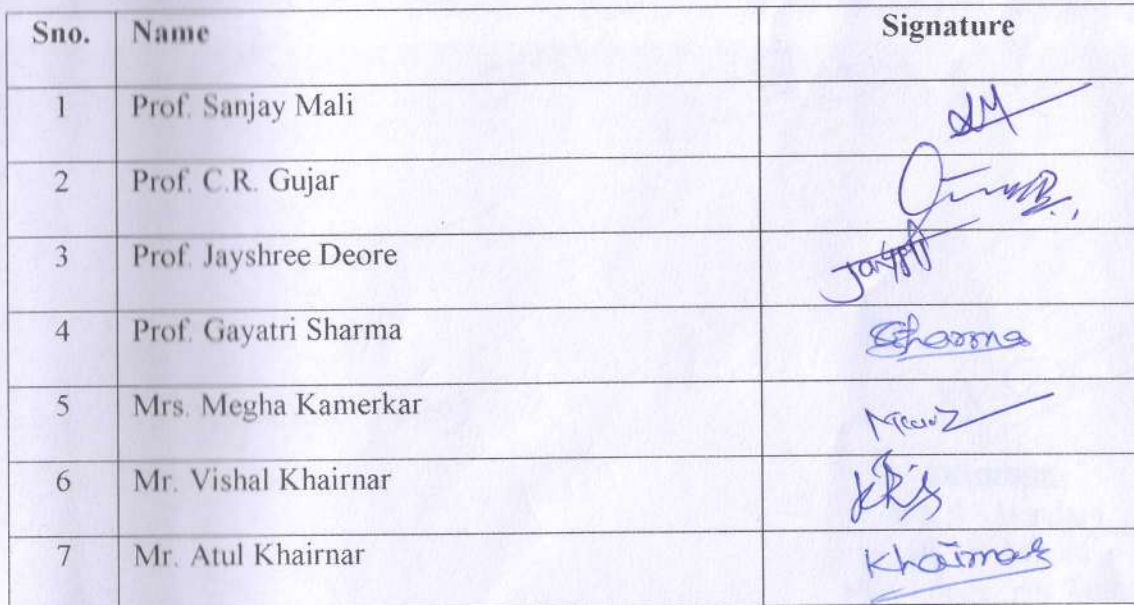 Sno. Name Signature
1 Prof. Sanjay Mali SM
2 Prof. C.R. Gujar
3 Prof. Jayshree Deore
4 Prof. Gayatri Sharma Sharma
5 Mrs. Megha Kamerkar
6 Mr. Vishal Khairnar
7 Mr. Atul Khairnar Khairnar